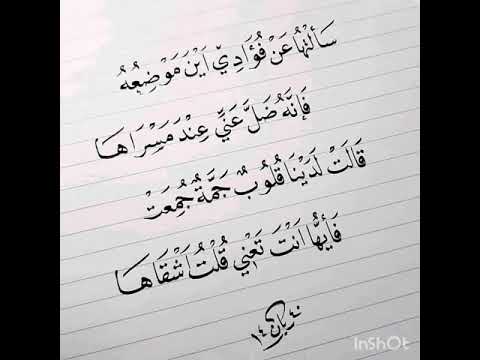 سَأَلْتُهَا عَنْ فُؤَادِيْ اَيْنَ مَوْضِعُهُ
فَإِنَّهُ ضَلَّ عَنِّيْ عِنْدَ مَسْرَاهَا
قَالَتْ لَدَيْنَا قُلُوْبٌ جَمَّةٌ جُمِعَتْ
فَأَيُّهَا اَنْتَ تَعْنِيْ قُلْتُ اَشْقَاهَا
InShOt